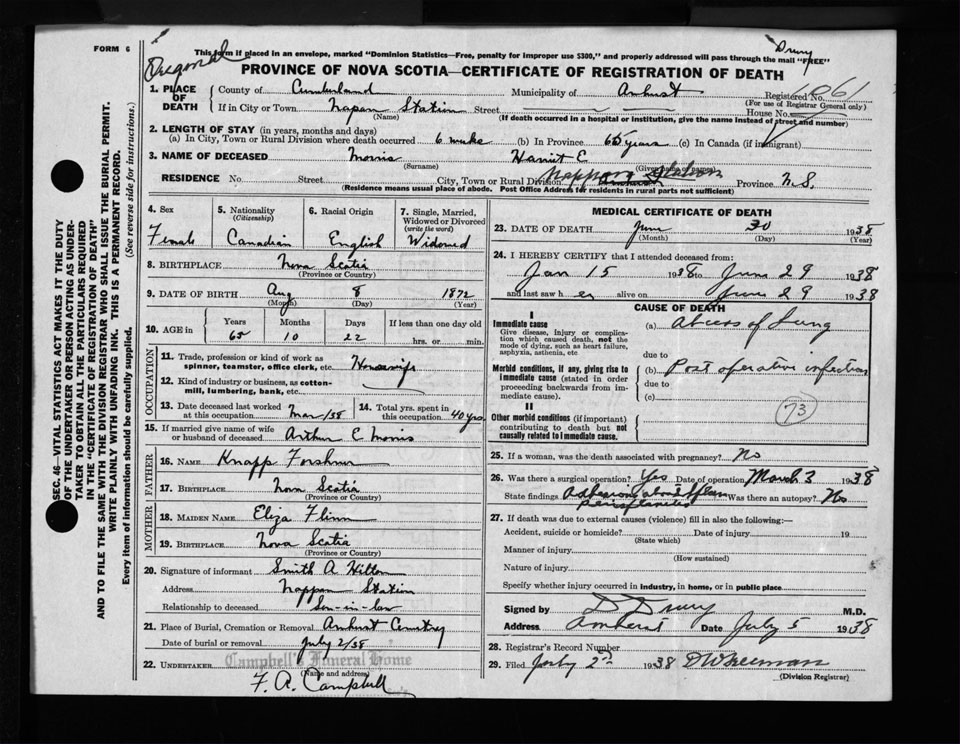 FORM 6
Original
This form if placed in an envelope, marked "Dominion Statistics—Free, penalty for improper use $300," and properly addressed will pass through the mail "FREE"
Drury
PROVINCE OF NOVA SCOTIA—CERTIFICATE OF REGISTRATION OF DEATH
1. PLACE OF DEATH
County of Cumberland Municipality of Amherst Registered No. 1061
(For use of Registrar General only)
If in City or Town Napan Station Street House No.
(Name) (If death occurred in a hospital or institution, give the name instead of street and number)
2. LENGTH OF STAY (in years, months and days)
(a) In City, Town or Rural Division where death occurred 6 weeks (b) In Province 65 years (c) In Canada (if immigrant)
3. NAME OF DECEASED Morris Harriet E.
(Surname) (Given name or names)
RESIDENCE No. Street City, Town or Rural Division Nappan Station Province N.S.
(Residence means usual place of abode. Post Office Address for residents in rural parts not sufficient)
4. Sex Female
5. Nationality (Citizenship) Canadian
6. Racial Origin English
7. Single, Married, Widowed or Divorced (write the word) Widowed
8. BIRTHPLACE Nova Scotia
(Province or Country)
9. DATE OF BIRTH Aug 8 1872
(Month) (Day) (Year)
10. AGE in Years Months Days If less than one day old
65 10 22 hrs. or min.
OCCUPATION
11. Trade, profession or kind of work as spinner, teamster, office clerk, etc. Housewife
12. Kind of industry or business, as cotton-mill, lumbering, bank, etc.
13. Date deceased last worked at this occupation Mar/38
14. Total yrs. spent in this occupation 40 yrs.
15. If married give name of wife or husband of deceased Arthur E Morris
FATHER
16. NAME Knapp Forshner
17. BIRTHPLACE Nova Scotia
(Province or Country)
MOTHER
18. MAIDEN NAME Eliza Flinn
19. BIRTHPLACE Nova Scotia
(Province or Country)
20. Signature of informant Smith A Hilton
Address Nappan Station
Relationship to deceased Son-in-law
21. Place of Burial, Cremation or Removal Amherst Cemetery
Date of burial or removal July 2/38
22. UNDERTAKER Campbell's Funeral Home
(Name and address)
F. A. Campbell
MEDICAL CERTIFICATE OF DEATH
23. DATE OF DEATH June 30 1938
(Month) (Day) (Year)
24. I HEREBY CERTIFY that I attended deceased from:
Jan 15 1938 to June 29 1938
and last saw her alive on June 29 1938
CAUSE OF DEATH
I
Immediate cause
Give disease, injury or complication which caused death, not the mode of dying, such as heart failure, asphyxia, asthenia, etc
(a) Abcess of Lung
due to
Morbid conditions, if any, giving rise to immediate cause (stated in order proceeding backwards from immediate cause).
(b) Post operative infection
due to
(c)
II
Other morbid conditions (if important) contributing to death but not causally related to immediate cause.
73
25. If a woman, was the death associated with pregnancy? No
26. Was there a surgical operation? Yes Date of operation March 3 1938
State findings Adhesions about Spleen Was there an autopsy? No
27. If death was due to external causes (violence) fill in also the following:—
Accident, suicide or homicide? Date of injury 19
(State which)
Manner of injury
(How sustained)
Nature of injury
Specify whether injury occurred in industry, in home, or in public place
Signed by D Drury M.D.
Address Amherst Date July 5 1938
28. Registrar's Record Number
29. Filed July 2nd 1938
(Division Registrar)
SEC. 46—VITAL STATISTICS ACT MAKES IT THE DUTY
OF THE UNDERTAKER OR PERSON ACTING AS UNDER-
TAKER TO OBTAIN ALL THE PARTICULARS REQUIRED
IN THE "CERTIFICATE OF REGISTRATION OF DEATH"
AND TO FILE THE SAME WITH THE DIVISION REGISTRAR WHO SHALL ISSUE THE BURIAL PERMIT.
WRITE PLAINLY WITH UNFADING INK. THIS IS A PERMANENT RECORD.
Every item of information should be carefully supplied. (See reverse side for instructions.)